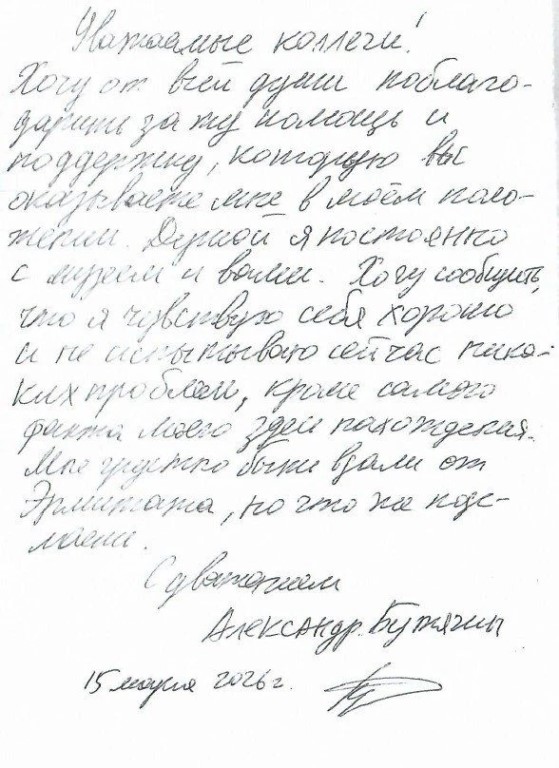 Уважаемые коллеги!
Хочу от всей души поблаго-
дарить за ту помощь и
поддержку, которую вы
оказываете мне в моём поло-
жении. Душой я постоянно
с музеем и вами. Хочу сообщить,
что я чувствую себя хорошо
и не испытываю сейчас ника-
ких проблем, кроме самого
факта моего здесь нахождения.
Мне грустно быть вдали от
Эрмитажа, но что же под-
С уважением
Александр Бутягин
15 марта 2026 г.